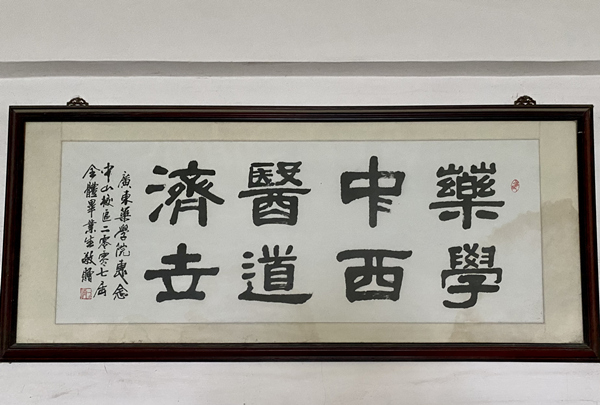 藥學
中西
醫道
濟世
廣東藥學院惠念
中山校區二零零七屆
全體畢業生敬贈